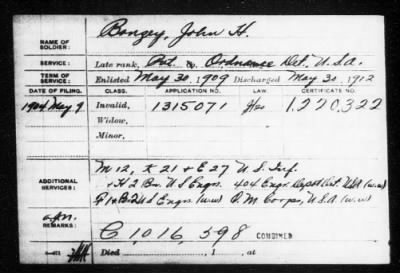 NAME OF SOLDIER: Bongey, John H.
SERVICE: Late rank, Pvt. Co. Ordnance Det. U.S.A.
TERM OF SERVICE: Enlisted May 30, 1909 Discharged May 30, 1912
DATE OF FILING. CLASS. APPLICATION NO. LAW. CERTIFICATE NO.
May 9 Invalid, 1315071 1,220,322
Widow,
Minor,
ADDITIONAL SERVICES: M 12, K 21 + E 27 U.S. Inf.
+ H 2 Bn. U S Engrs. 404 Engr. Depot Det. USA (w.w)
U S Engrs (w.w) Q. M. Corps, U.S.A (w.w)
REMARKS:
C 1,016,598 COMBINED
Died , 1 , at